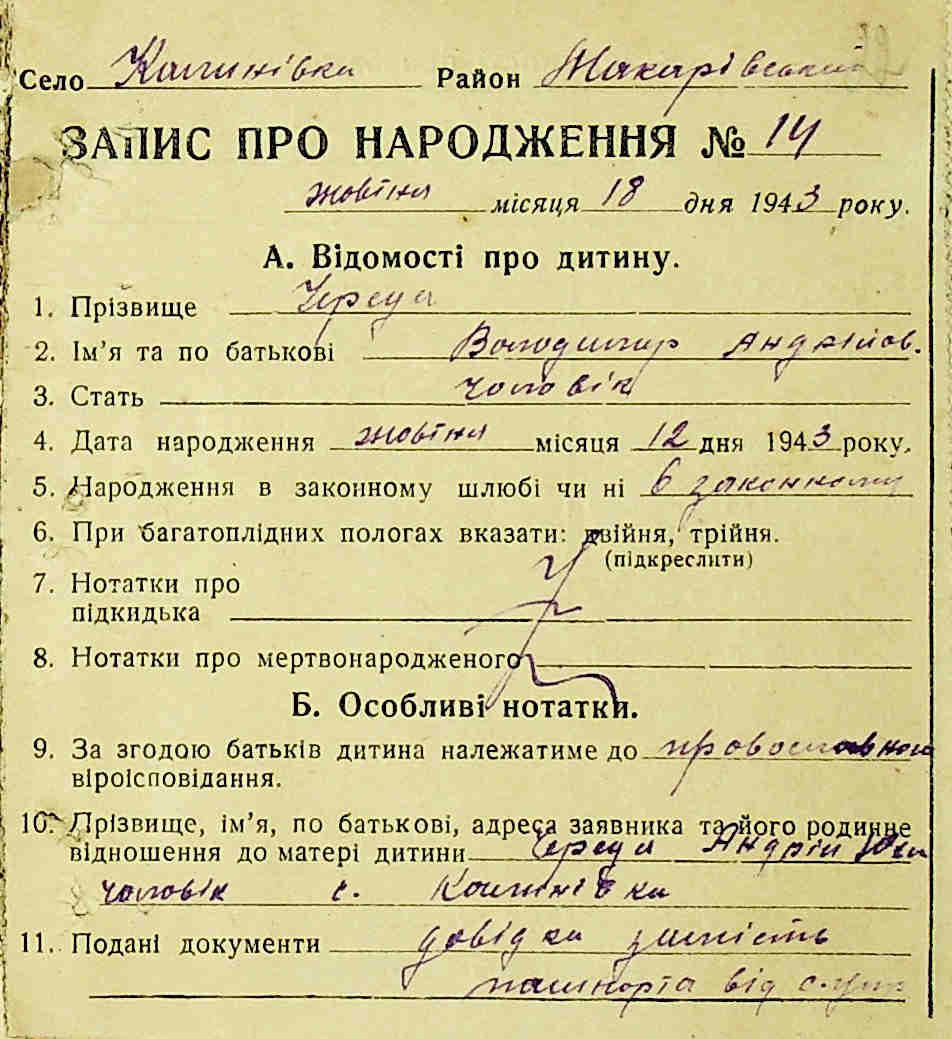 Село Калинівка Район Макарівський
ЗАПИС ПРО НАРОДЖЕННЯ № 14
жовтня місяця 18 дня 1943 року.
А. Відомості про дитину.
1. Прізвище Череда
2. Ім'я та по батькові Володимир Андрійов.
3. Стать чоловік
4. Дата народження жовтня місяця 12 дня 1943 року.
5. Народження в законному шлюбі чи ні в законному
6. При багатоплідних пологах вказати: двійня, трійня.
(підкреслити)
7. Нотатки про
підкидька
8. Нотатки про мертвонародженого
Б. Особливі нотатки.
9. За згодою батьків дитина належатиме до
віроісповідання.
10. Прізвище, ім'я, по батькові, адреса заявника та його родинне
відношення до матері дитини Череда Андрій
чоловік с. Калинівка
11. Подані документи довідка замість
паспорта від